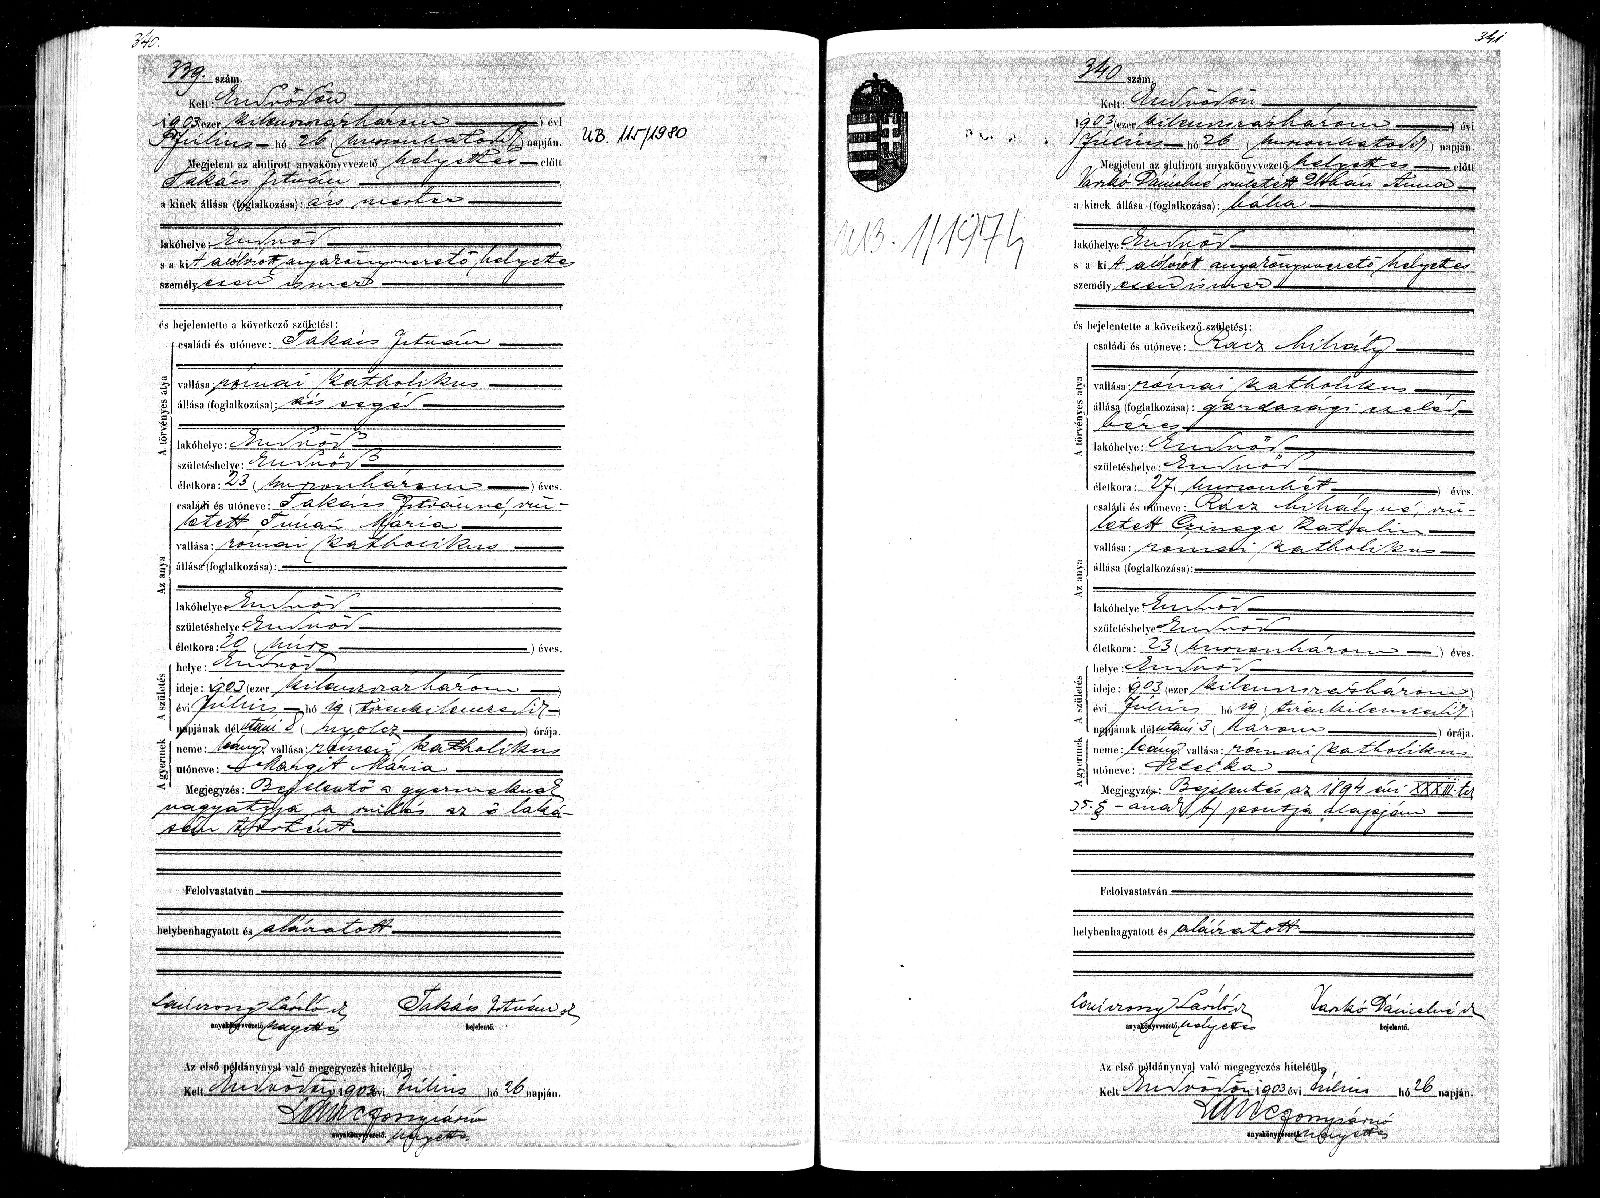 340.
339. szám.
Kelt: Endrődön
1903 (ezer kilenczszázhárom) évi
Július hó 26 (huszonhatodik) napján.
UB. 115/1980
Megjelent az alulirott anyakönyvvezető helyettes előtt
Takács István
a kinek állása (foglalkozása): ács mester
lakóhelye: Endrőd
s a kit alólirott anyakönyvvezető helyettes
személyesen ismer
és bejelentette a következő születést:
A törvényes atya
családi és utóneve: Takács István
vallása: római katholikus
állása (foglalkozása): ács segéd
lakóhelye: Endrőd
születéshelye: Endrőd
életkora: 23 (huszonhárom) éves.
Az anya
családi és utóneve: Takács Istvánné, szü-
letett Mária
vallása: római katholikus
állása (foglalkozása):
lakóhelye: Endrőd
születéshelye: Endrőd
életkora: 20 (húsz) éves.
A születés
helye: Endrőd
ideje: 1903 (ezer kilenczszázhárom)
évi Július hó 19 (tizenkilenczedik)
napjának délutáni 8 (nyolcz) órája.
A gyermek
neme: leány vallása: római katholikus
utóneve: Margit Mária
Megjegyzés: Bejelentő a gyermeknek
nagyatyja a szülés az ő laká-
sán történt.
Felolvastatván
helybenhagyatott és aláiratott
László
anyakönyvvezető helyettes
Takács István
bejelentő.
Az első példánynyal való megegyezés hiteléül,
Kelt Endrődön 1903 évi Július hó 26 napján.
anyakönyvvezető. helyettes
341
340 szám.
Kelt: Endrődön
1903 (ezer kilenczszázhárom) évi
Július hó 26 (huszonhatodik) napján.
Megjelent az alulirott anyakönyvvezető helyettes előtt
Varkó Dánielné született Uhrin Anna
a kinek állása (foglalkozása): bába
UB. 1/1974
lakóhelye: Endrőd
s a kit alólirott anyakönyvvezető helyettes
személyesen ismer
és bejelentette a következő születést:
A törvényes atya
családi és utóneve: Rácz Mihály
vallása: római katholikus
állása (foglalkozása): gazdasági cseléd
béres
lakóhelye: Endrőd
születéshelye: Endrőd
életkora: 27 (huszonhét) éves.
Az anya
családi és utóneve: Rácz Mihályné, szü-
letett Czinege Katalin
vallása: római katholikus
állása (foglalkozása):
lakóhelye: Endrőd
születéshelye: Endrőd
életkora: 23 (huszonhárom) éves.
A születés
helye: Endrőd
ideje: 1903 (ezer kilenczszázhárom)
évi Július hó 19 (tizenkilenczedik)
napjának délutáni 3 (három) órája.
A gyermek
neme: leány vallása: római katholikus
utóneve: Etelka
Megjegyzés: Bejelentés az 1894 évi XXXIII. tcz
35. § - ának b) pontja alapján
Felolvastatván
helybenhagyatott és aláiratott
László
anyakönyvvezető helyettes
Varkó Dánielné
bejelentő.
Az első példánynyal való megegyezés hiteléül,
Kelt Endrődön 1903 évi Július hó 26 napján.
anyakönyvvezető. helyettes